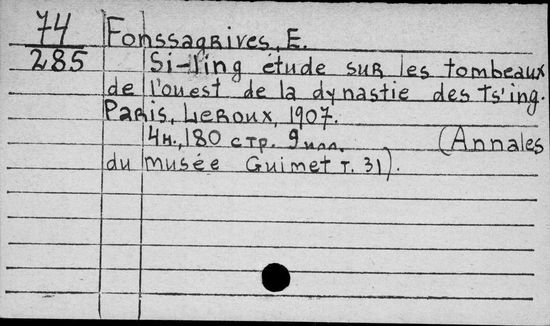 74
285
Fonssagrives, E.
Si-ling étude sur les tombeaux
de l'ouest de la dynastie des Ts'ing.
Paris, Leroux, 1907.
4н., 180 стр. 9 илл. (Annales
du musée Guimet т. 31).